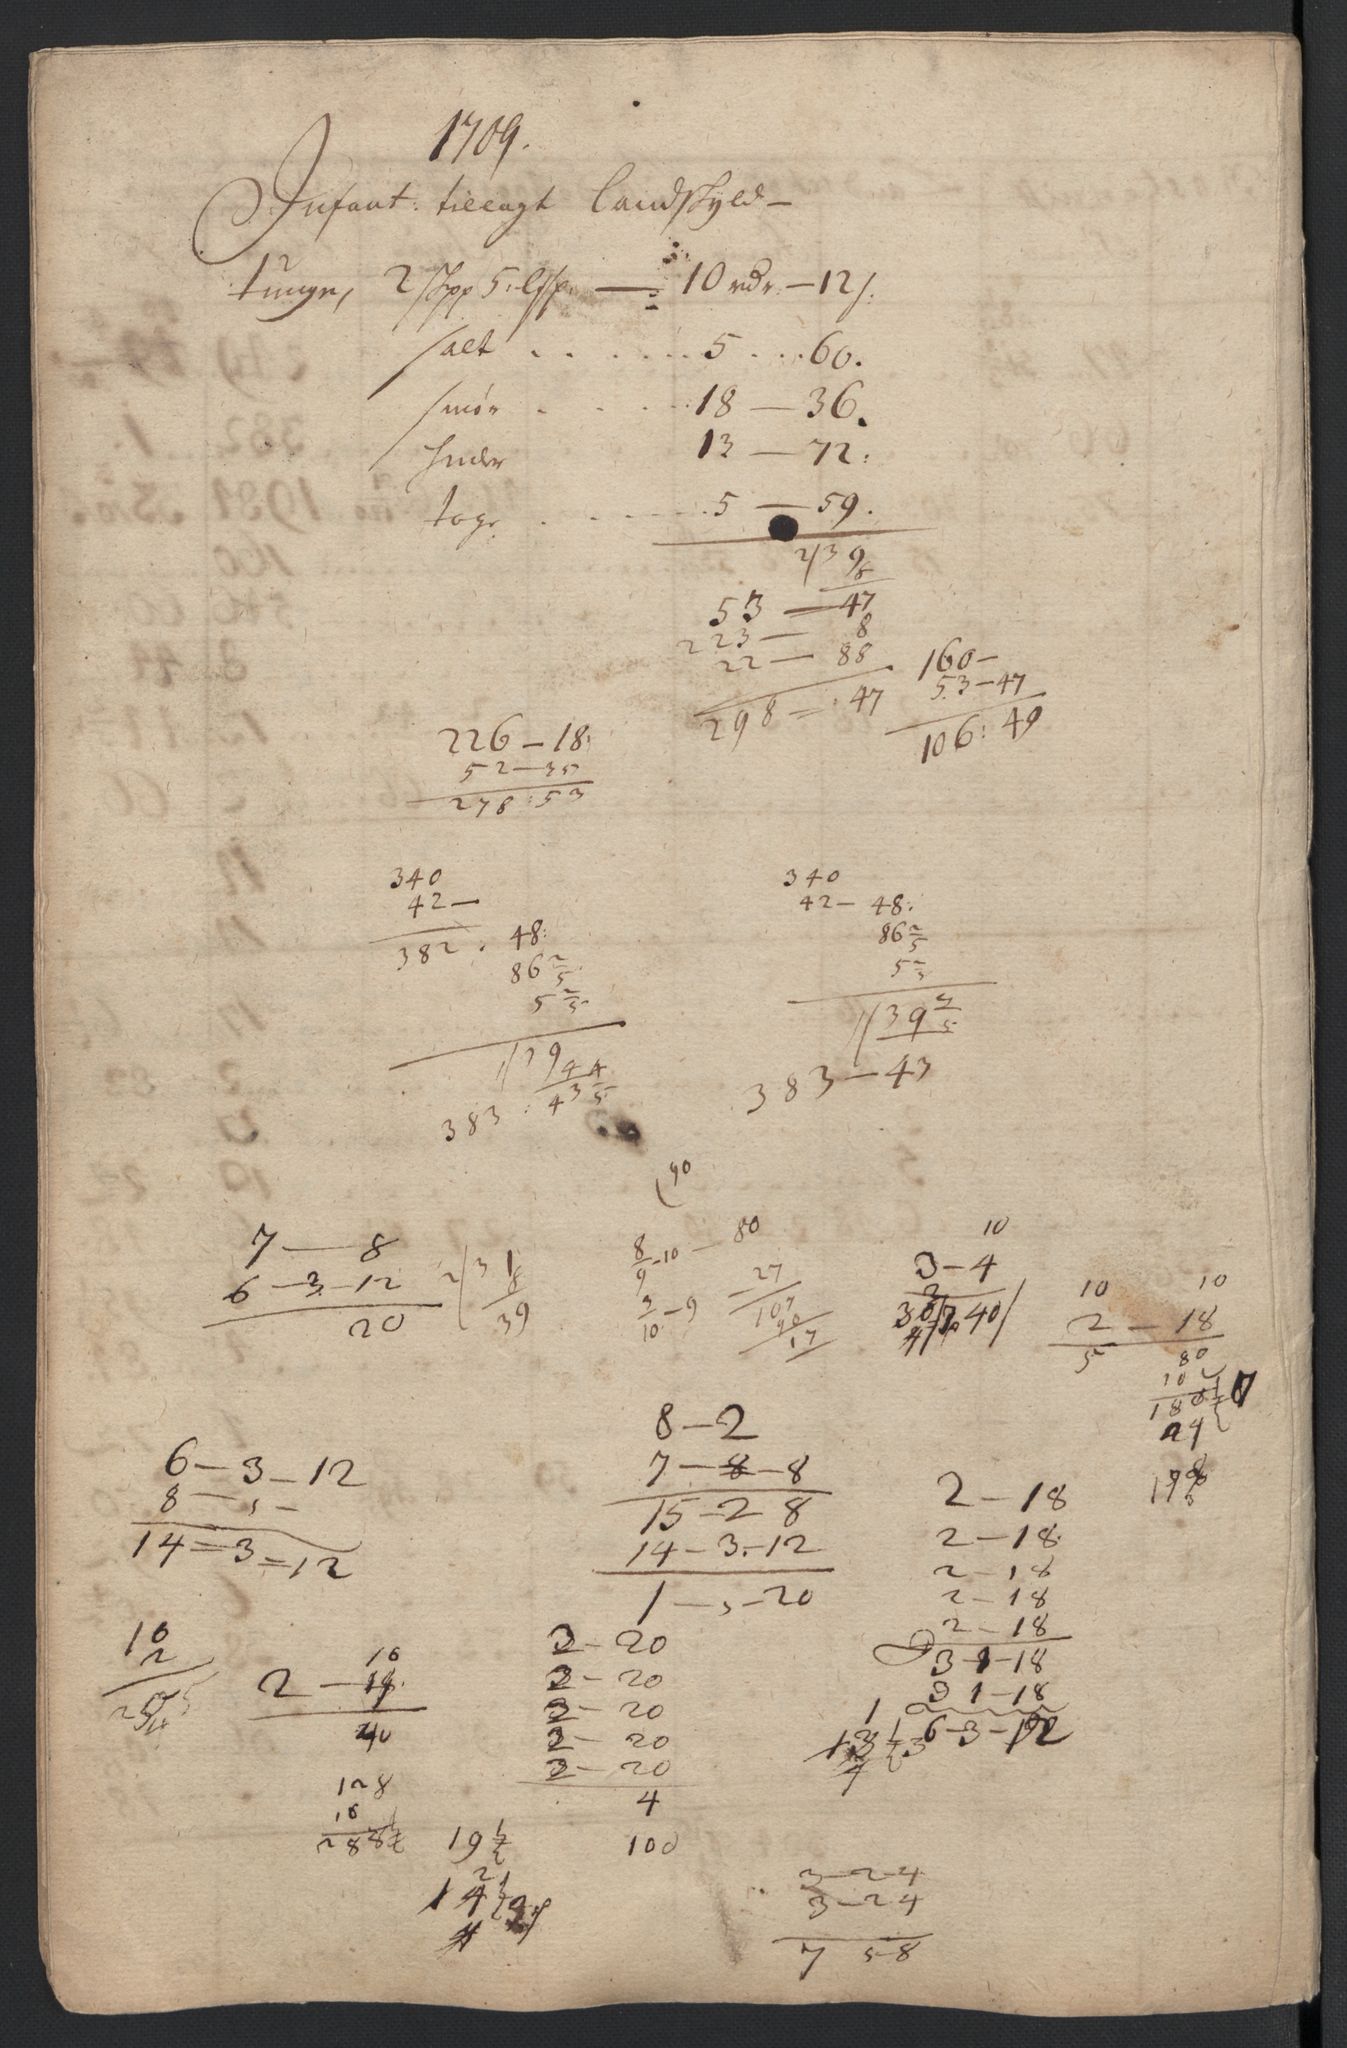 1709.
Infant: tillagt Landskyld –
tunge, 2 skpp 5: lpp — 10 rdr. – 12 s:
salt . . . . . . 5 . . . 60.
smör . . . . . 18 — 36.
huder 13 — 72:
toge . . . . . . 5 — 59.
2/3 9
8
53 — 47
223 — 8
22 — 88
298 = : 47
160 –
53 – 47
106 : 49
226 – 18:
52 – 35
278 : 53
340
42 –
382 . 48:
86 2/5
5 2/5
1/39
4 4
383 : 43 5
340
42 – 48:
86 2/5
5 2/5
1/39 4/5
383 – 43
90
7 — 8
6 – 3 – 12
20
2/3 1
8
39
8/9 – 10 – 80
9/10 – 9
27
107
90
17
10
3 – 4
10 10
2 – 18
5 80
10
180
6 – 3 – 12
8 – 5 –
14 = 3 = 12
8 – 2
7 – 8 – 8
15 – 2 8
14 – 3. – 12
1 – 5 – 20
2 – 18
2 – 18.
2 – 18
2 – 18
2 – 18
3 – 1 – 18
3 1 – 18
6 – 3 – 12
10
2
16
2 – 18.
40
128
16
288 1/2
2 – 20
2 – 20
2 – 20
2 – 20
2 – 20
4
100
19 1/2
2
14 1/2
3 – 2 – 4
3 – 2 4
7 5 – 8